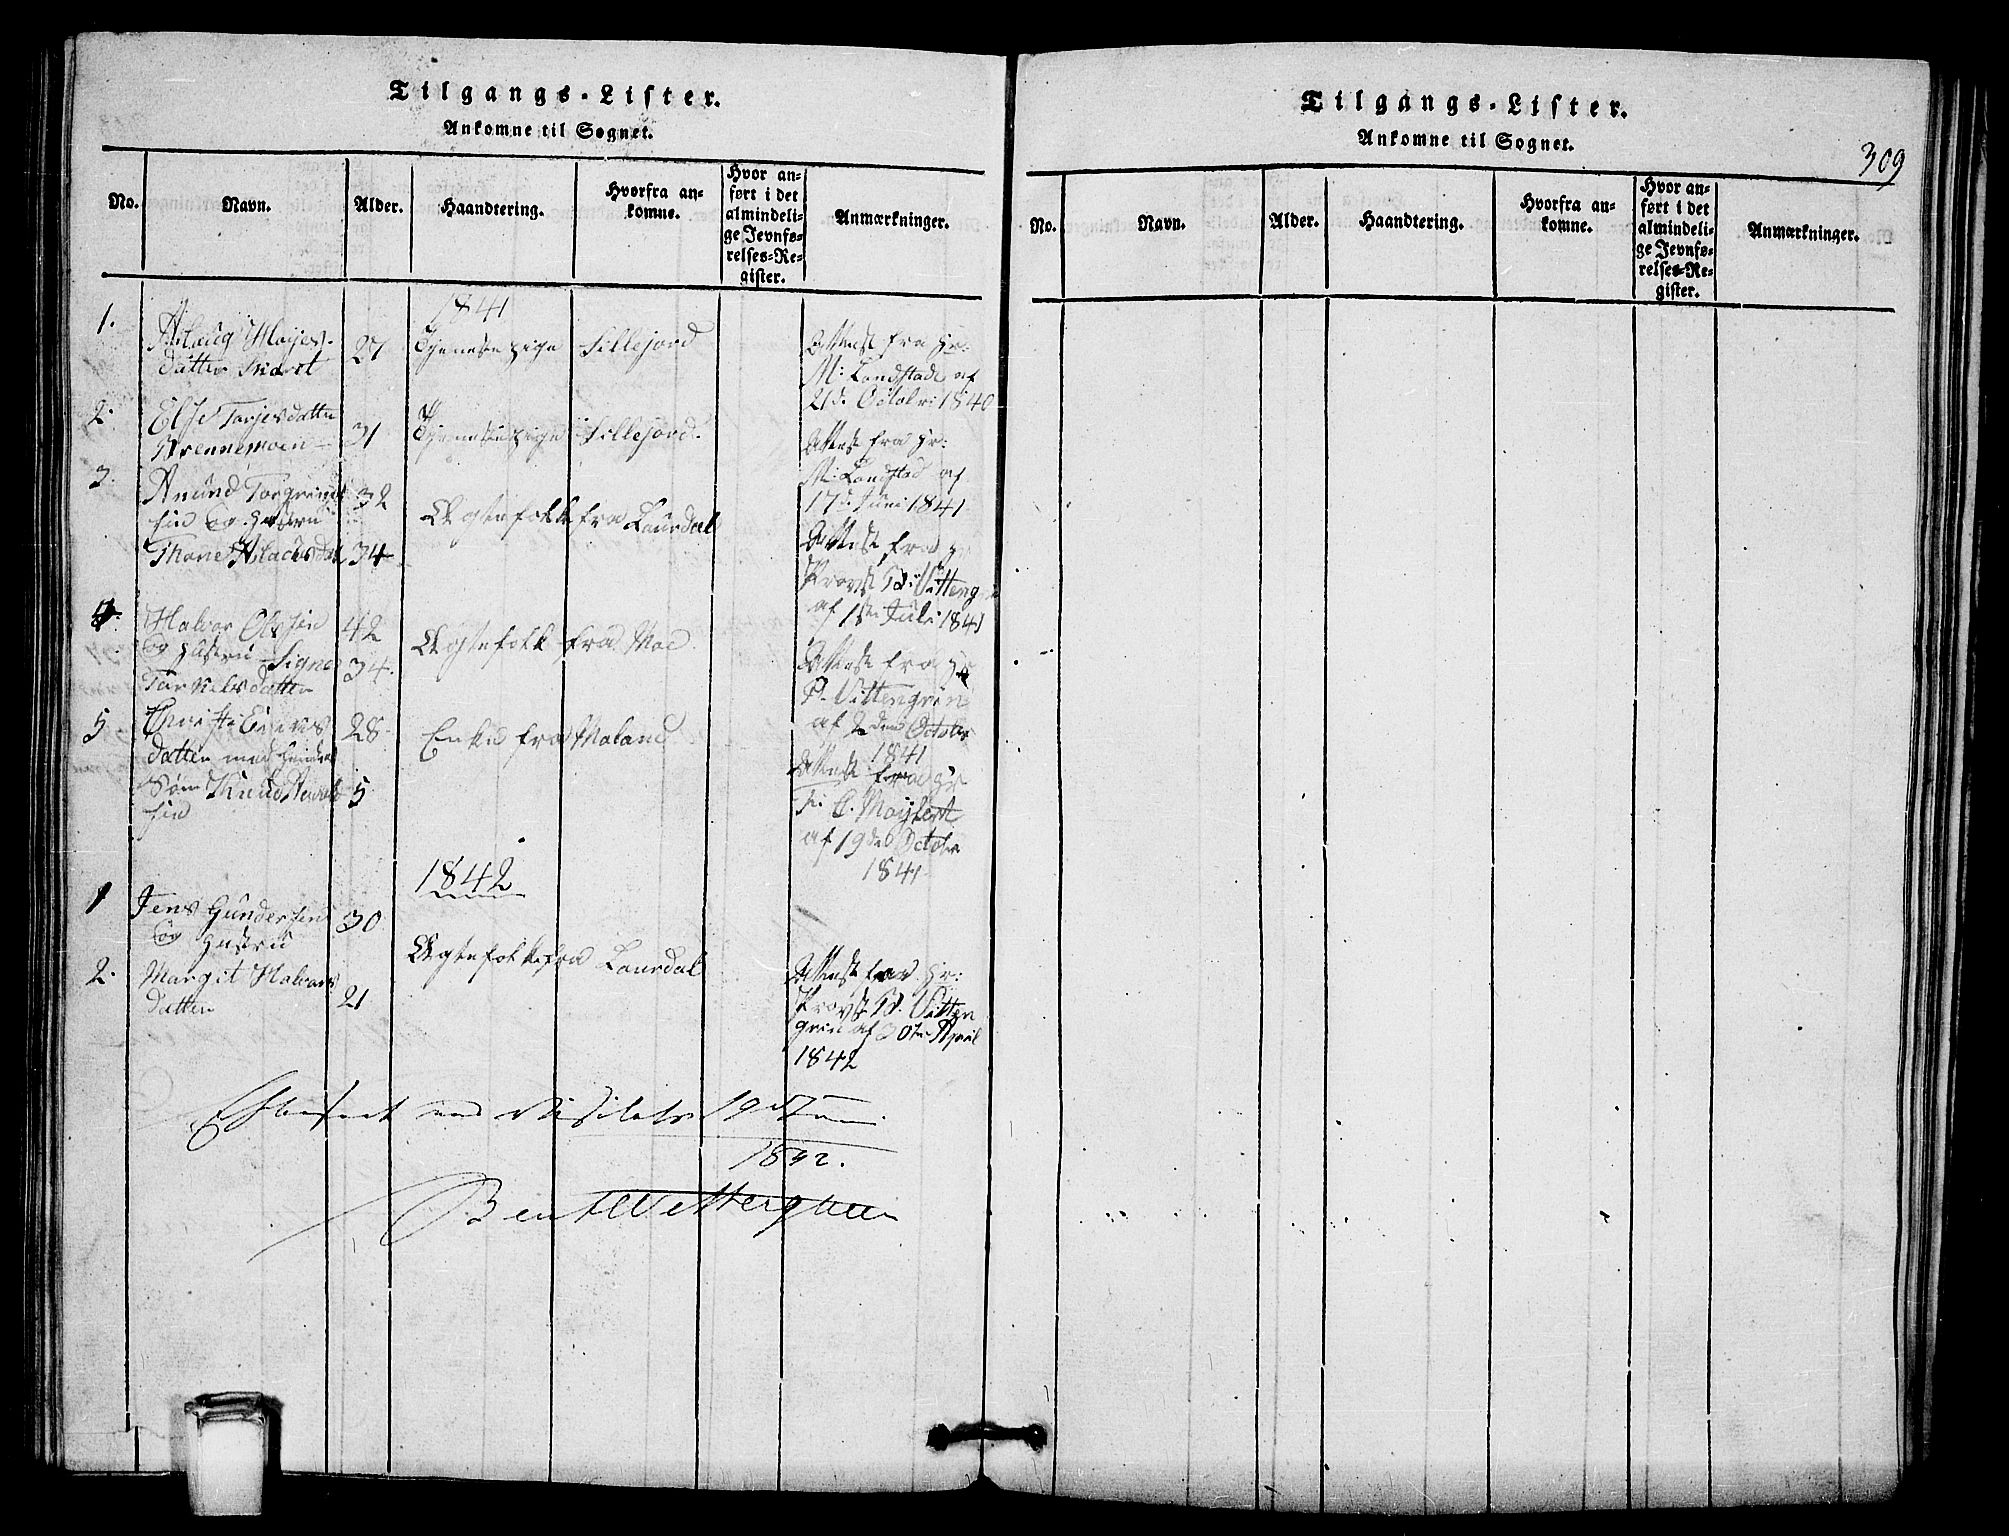 Tilgangs-Lister.
Ankomne til Sognet.
No.
Navn.
Alder.
Haandtering.
Hvorfra an-
komne.
Hvor an-
ført i det
almindeli-
ge Jevnfø-
relses-Re-
gister.
Anmærkninger.
1841
1.
Aslaug
datter
27
Tjenestepige
Sillejord
Attest fra Hr:
M: Landstad af
21de Octobri 1840
2.
Else Tarjesdatter
Brennemoen
31
Tjenestepige
Sillejord.
Attest fra Hr:
M: Landstad af
17de Juni 1841
3.
Anund Torgrims
sen Og Hustru
Thone Aslaksdat
32
34
Ægtefolk fra Laurdal
Attest fra
Provst B. Vetteng
af 1ste Juli 1841
4.
Halvor Olssen
Og Hustru Signe
Tarkelsdatter
42
34.
Ægtefolk fra Moe
Attest fra Hr
P. Vettengren
af 2den October
1841
5
datter med hendes
Søn Knud
sen
28
5
Enke fra Moland
Attest fra Hr
af 19de October
1841
1842
1
Jens Gundersen
Og Hustru
30
2.
Margit Halvors
datter
21
Ægtefolk fra Laurdal
Attest fra Hr:
Provst B. Vetten
gren af 30te April
1842
Efterseet ved Visitats 19 Juni
1842.
Tilgangs-Lister.
Ankomne til Sognet.
309
No.
Navn.
Alder.
Haandtering.
Hvorfra an-
komne.
Hvor an-
ført i det
almindeli-
ge Jevnfø-
relses-Re-
gister.
Anmærkninger.